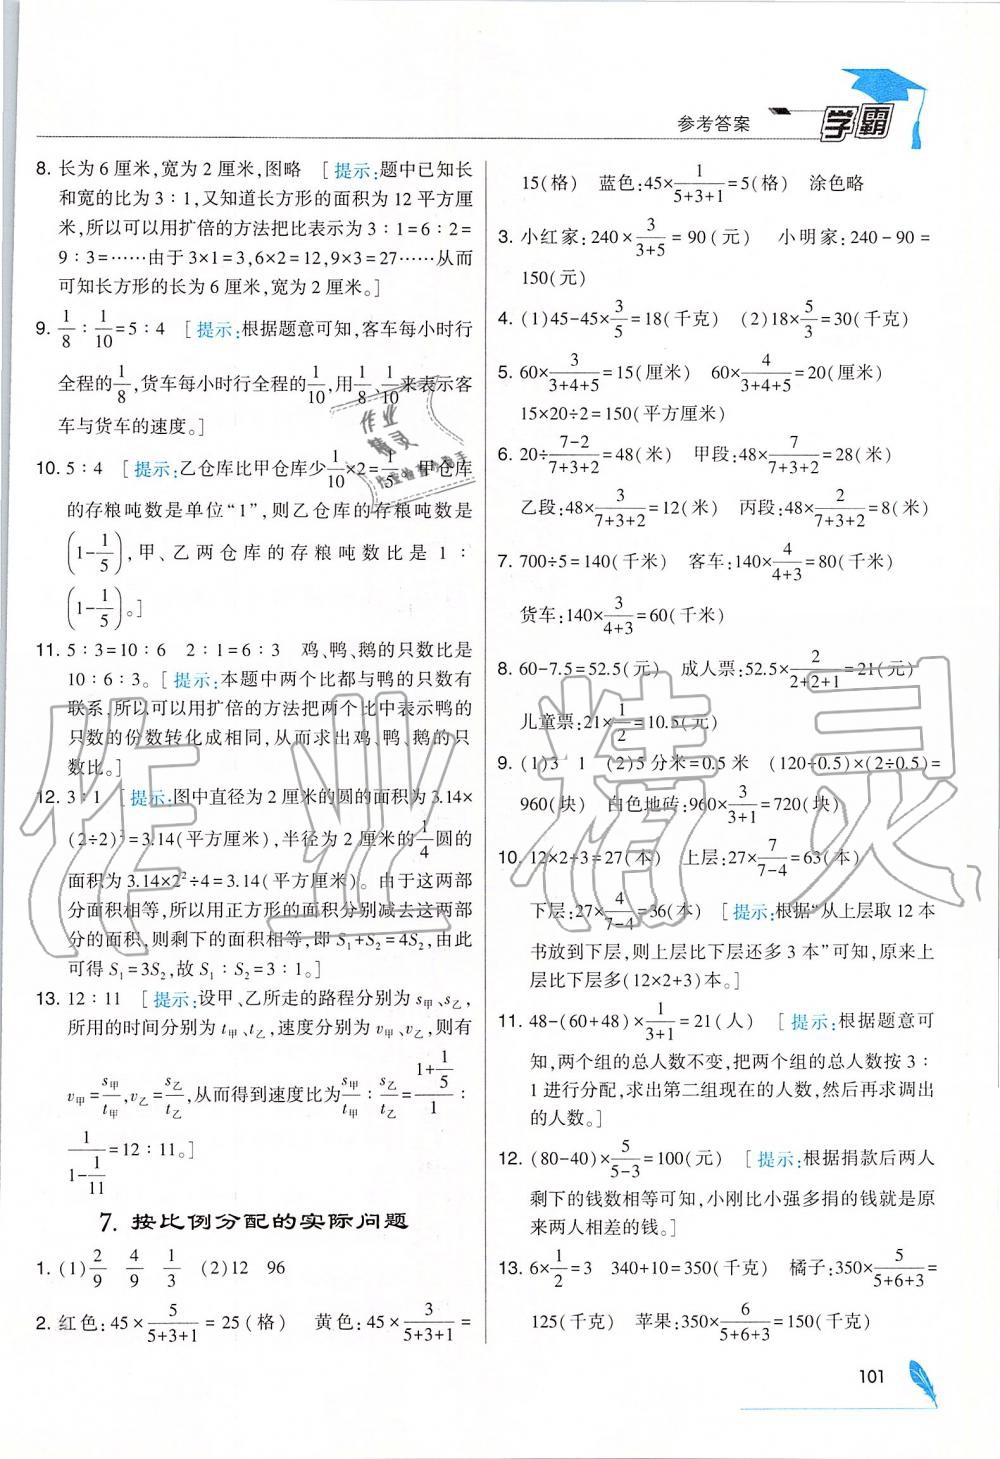 参考答案 学霸
8. 长为 6 厘米,宽为 2 厘米,图略 [提示:题中已知长
和宽的比为 3∶1,又知道长方形的面积为 12 平方厘
米,所以可以用扩倍的方法把比表示为 3∶1=6∶2=
9∶3=……由于 3×1=3,6×2=12,9×3=27……从而
可知长方形的长为 6 厘米,宽为 2 厘米。]
9. 1/8∶1/10=5∶4 [提示:根据题意可知,客车每小时行
全程的1/8,货车每小时行全程的1/10,用1/8、1/10来表示客
车与货车的速度。]
10. 5∶4 [提示:乙仓库比甲仓库少1/10×2=1/5。甲仓库
的存粮吨数是单位“1”,则乙仓库的存粮吨数是
(1-1/5),甲、乙两仓库的存粮吨数比是 1∶
(1-1/5)。]
11. 5∶3=10∶6 2∶1=6∶3 鸡、鸭、鹅的只数比是
10∶6∶3。[提示:本题中两个比都与鸭的只数有
联系,所以可以用扩倍的方法把两个比中表示鸭的
只数的份数转化成相同,从而求出鸡、鸭、鹅的只
数比。]
12. 3∶1 [提示:图中直径为 2 厘米的圆的面积为 3.14×
(2÷2)²=3.14(平方厘米),半径为 2 厘米的1/4圆的
面积为 3.14×2²÷4=3.14(平方厘米)。由于这两部
分面积相等,所以用正方形的面积分别减去这两部
分的面积,则剩下的面积相等,即 S₁+S₂=4S₂,由此
可得 S₁=3S₂,故 S₁∶S₂=3∶1。]
13. 12∶11 [提示:设甲、乙所走的路程分别为 s甲、s乙,
所用的时间分别为 t甲、t乙,速度分别为 v甲、v乙,则有
v甲=s甲/t甲,v乙=s乙/t乙,从而得到速度比为s甲/t甲∶s乙/t乙=(1+1/5)/1∶
1/(1-1/11)=12∶11。]
7. 按比例分配的实际问题
1. (1)2/9 4/9 1/3 (2)12 96
2. 红色:45×5/(5+3+1)=25(格) 黄色:45×3/(5+3+1)=
15(格) 蓝色:45×1/(5+3+1)=5(格) 涂色略
3. 小红家:240×3/(3+5)=90(元) 小明家:240-90=
150(元)
4. (1)45-45×3/5=18(千克) (2)18×5/3=30(千克)
5. 60×3/(3+4+5)=15(厘米) 60×4/(3+4+5)=20(厘米)
15×20÷2=150(平方厘米)
6. 20÷(7-2)/(7+3+2)=48(米) 甲段:48×7/(7+3+2)=28(米)
乙段:48×3/(7+3+2)=12(米) 丙段:48×2/(7+3+2)=8(米)
7. 700÷5=140(千米) 客车:140×4/(4+3)=80(千米)
货车:140×3/(4+3)=60(千米)
8. 60-7.5=52.5(元) 成人票:52.5×2/(2+2+1)=21(元)
儿童票:21×1/2=10.5(元)
9. (1)3 1 (2)5 分米=0.5 米 (120÷0.5)×(2÷0.5)=
960(块) 白色地砖:960×3/(3+1)=720(块)
10. 12×2+3=27(本) 上层:27×7/(7-4)=63(本)
下层:27×4/(7-4)=36(本) [提示:根据“从上层取 12 本
书放到下层,则上层比下层还多 3 本”可知,原来上
层比下层多(12×2+3)本。]
11. 48-(60+48)×1/(3+1)=21(人) [提示:根据题意可
知,两个组的总人数不变,把两个组的总人数按 3∶
1 进行分配,求出第二组现在的人数,然后再求调出
的人数。]
12. (80-40)×5/(5-3)=100(元) [提示:根据捐款后两人
剩下的钱数相等可知,小刚比小强多捐的钱就是原
来两人相差的钱。]
13. 6×1/2=3 340+10=350(千克) 橘子:350×5/(5+6+3)=
125(千克) 苹果:350×6/(5+6+3)=150(千克)
101
作业精灵